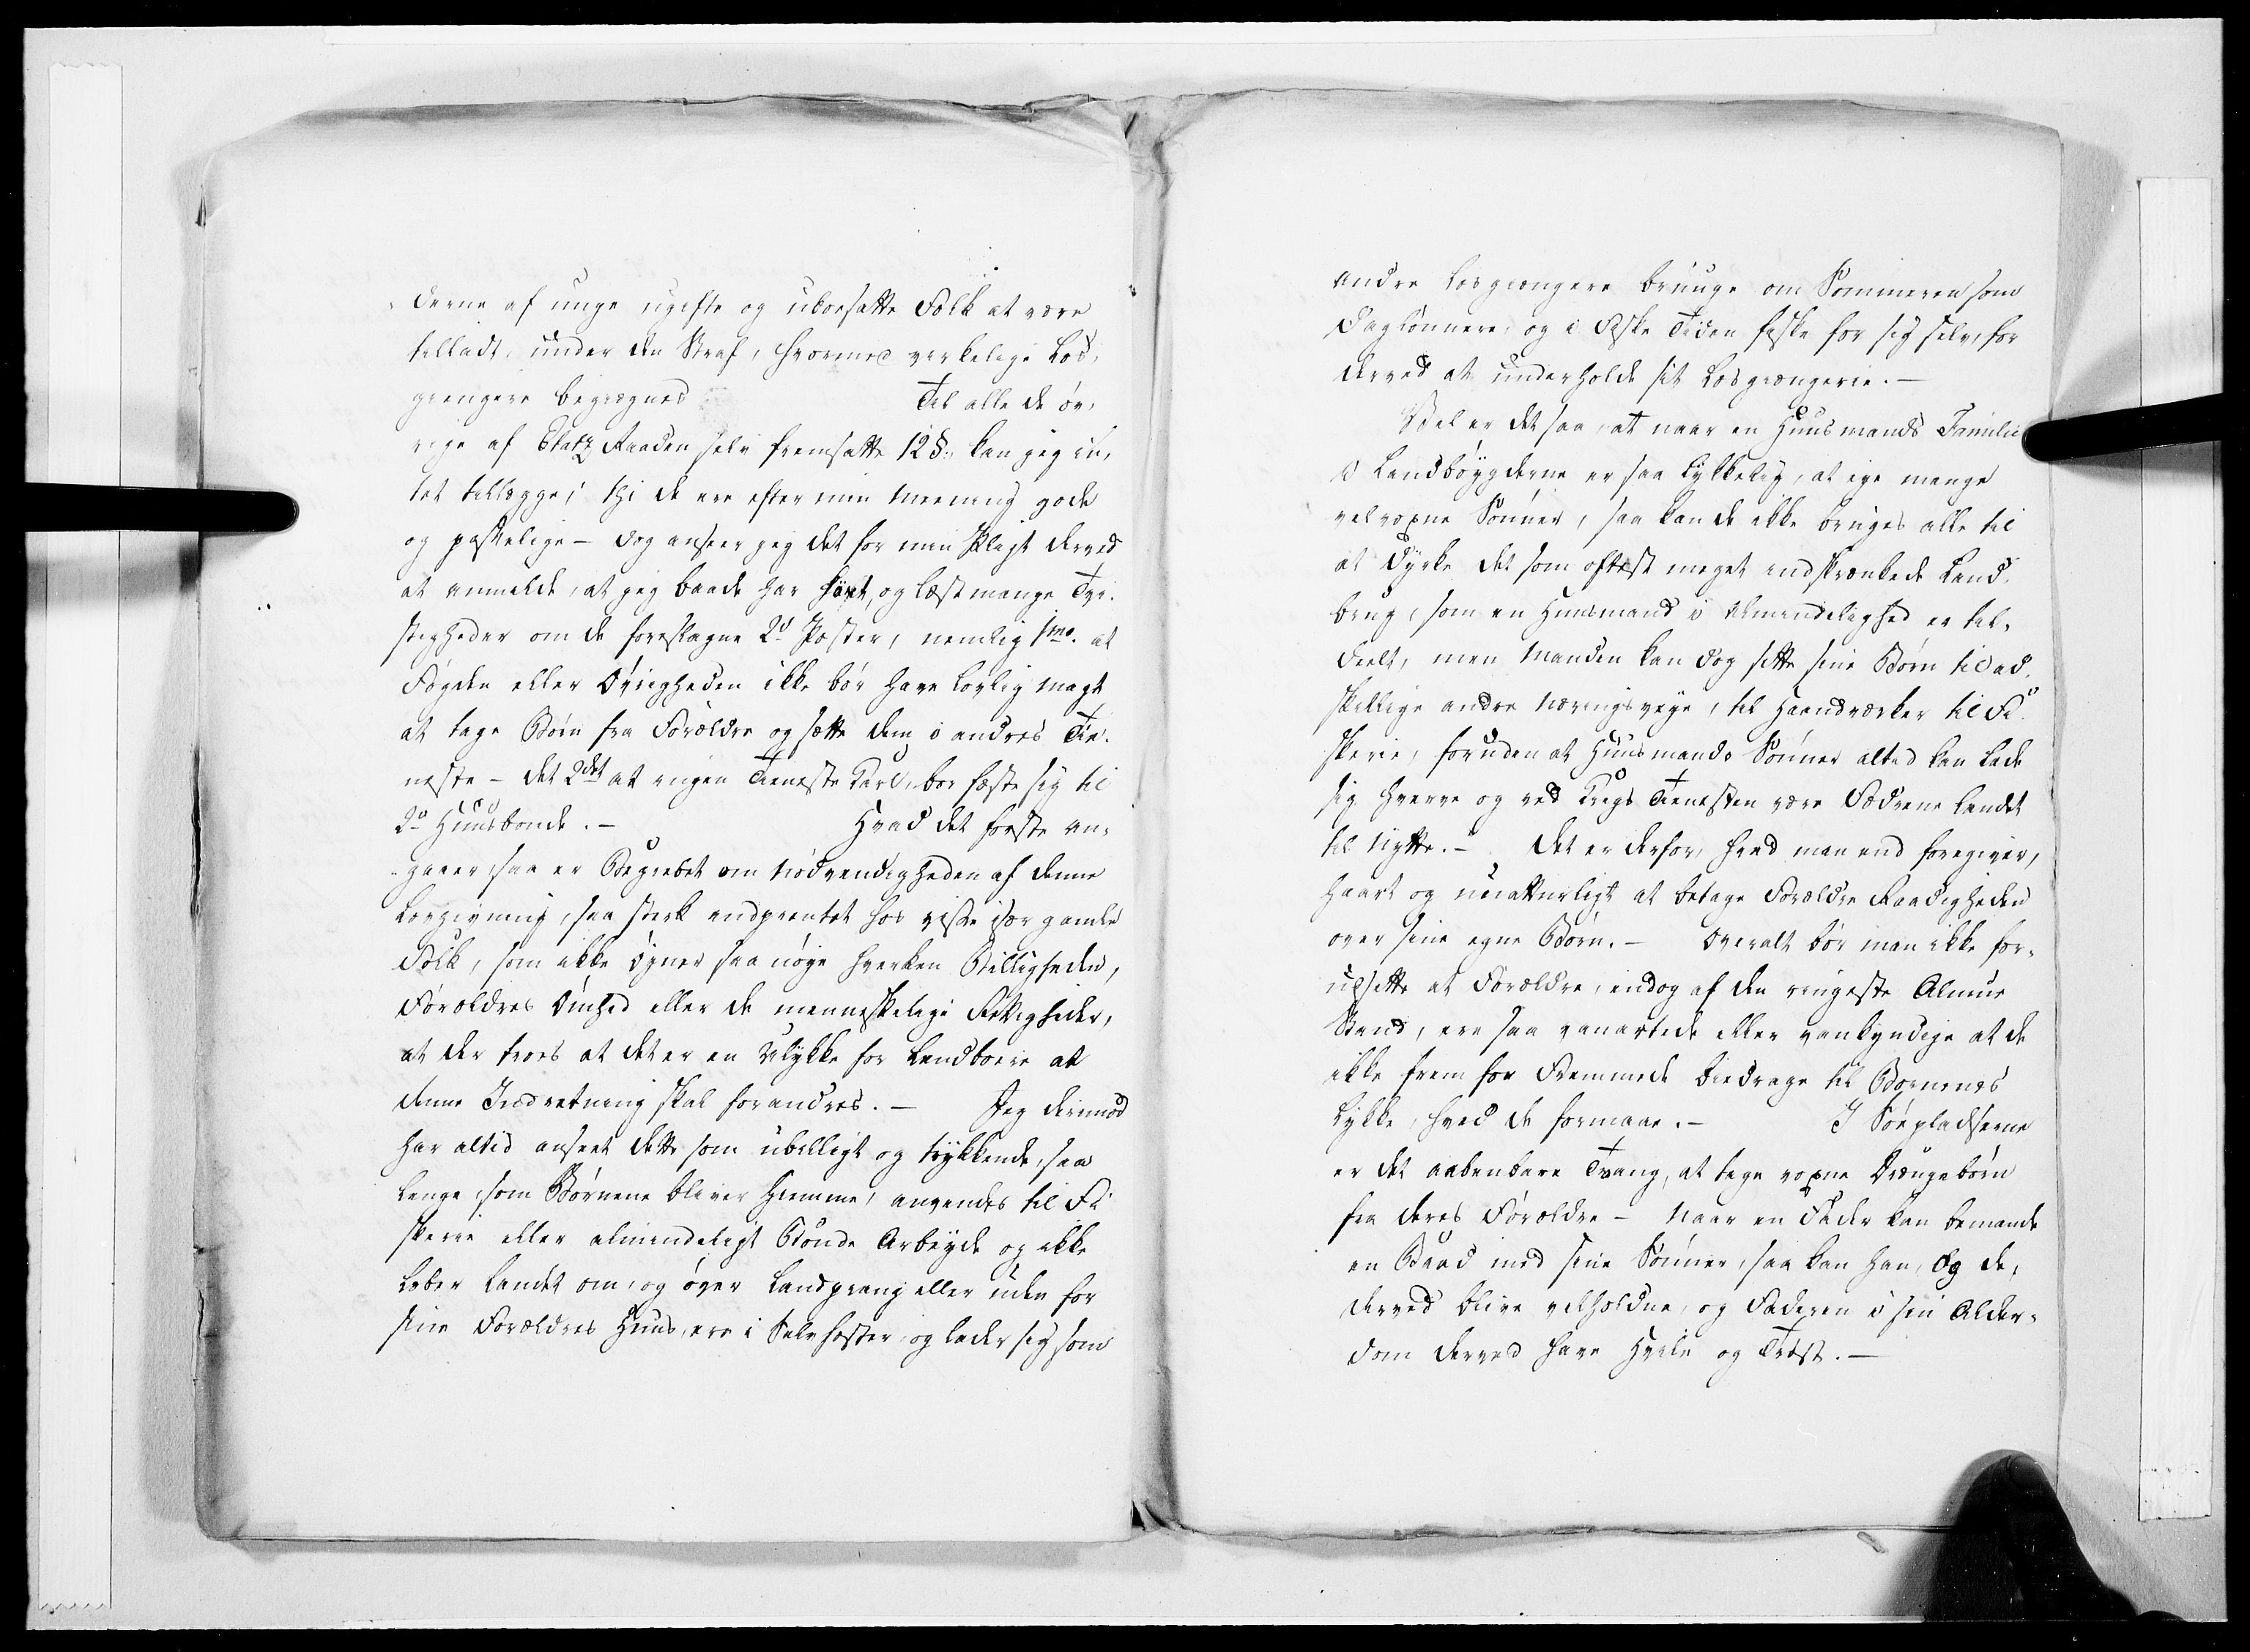 derne af unge ugifte og uboesatte Folk at være
tilladt, under den Straf, hvormed virkelige Løs,
giengere begiegnes Til alle de öv,
rige af Etatz Raaden selv fremsatte 12 §., kan jeg in,
tet tillægge; thi de ere efter min Meening gode
og passelige - dog anseer jeg det for min Pligt derved
at anmelde, at jeg baade har hört, og læst mange Tvi,
stigheder om de foreslagne 2de Poster, nemlig 1mo. at
Fogden eller Øvrigheden ikke bör have lovlig Magt
at tage Börn fra Forældre og sætte dem i andres Tie,
neste - det 2det at ingen Tieneste Karl, bör fæste sig til
2de Huusbonde. - Hvad det første an,
gaaer, saa er Begrebet om Nödvendigheden af denne
Lovgivning, saa sterk indprentet hos visse især gamle
Folk, som ikke öyner saa nöye hverken Billigheden,
Forældres Ömhed eller de menneskelige Rettigheder,
at der troes at det er en Ulykke for Landboere at
denne Indretning skal forandres. - Jeg derimod
har altid anseet dette som ubilligt og trykkende, saa
lenge som Börnene bliver hiemme, anvendes til Fi
skerie eller almindeligt Bonde Arbeyde og ikke
löber Landet om, og över Landprang eller uden for
sine Forældres Huus, ere i Selvhester, og lader sig som
andre Losgiengere bruuge om Sommeren som
Daglönnere, og i Fiske Tiden fiske for sig selv, for
derved at underholde sit Losgiengerie. -
Vel er det saa, at naar en Huusmands Familie
i Landböygderne er saa lykkelig, at eye mange
velvoxne Sönner, saa kan de ikke bruges alle til
at dyrke det som oftest meget indskrænkede Land,
brug, som en Huusmand i Almindelighed er til,
deelt, men Manden kan dog sette sine Börn til ad,
skillige andre Næringsveye, til Haandværker til Fi,
skerie, foruden at Huusmands Sönner altid kan lade
sig hverve og ved Krigs Tienesten være Fædrene Landet
til Nytte. - Det er derfor, hvad man end foregiver,
haart og unaturligt at betage Forældre Raadigheden
over sine egne Börn. - Overalt bör man ikke for,
udsette at Forældre, endog af den ringeste Almue
Stand, ere saa vanartede eller vankyndige at de
ikke frem for Fremmede biedrage til Bornenes
Lykke, hvad de formaae. - I Söepladserne
er det aabenbare Tvang, at tage voxne Drengebörn
fra deres Forældre - Naar en Fader kan bemande
en Baad med sine Sönner, saa kan han, og de,
derved blive velholdne, og Faderen i sin Alder,
dom derved have Hvile og Tröst. -